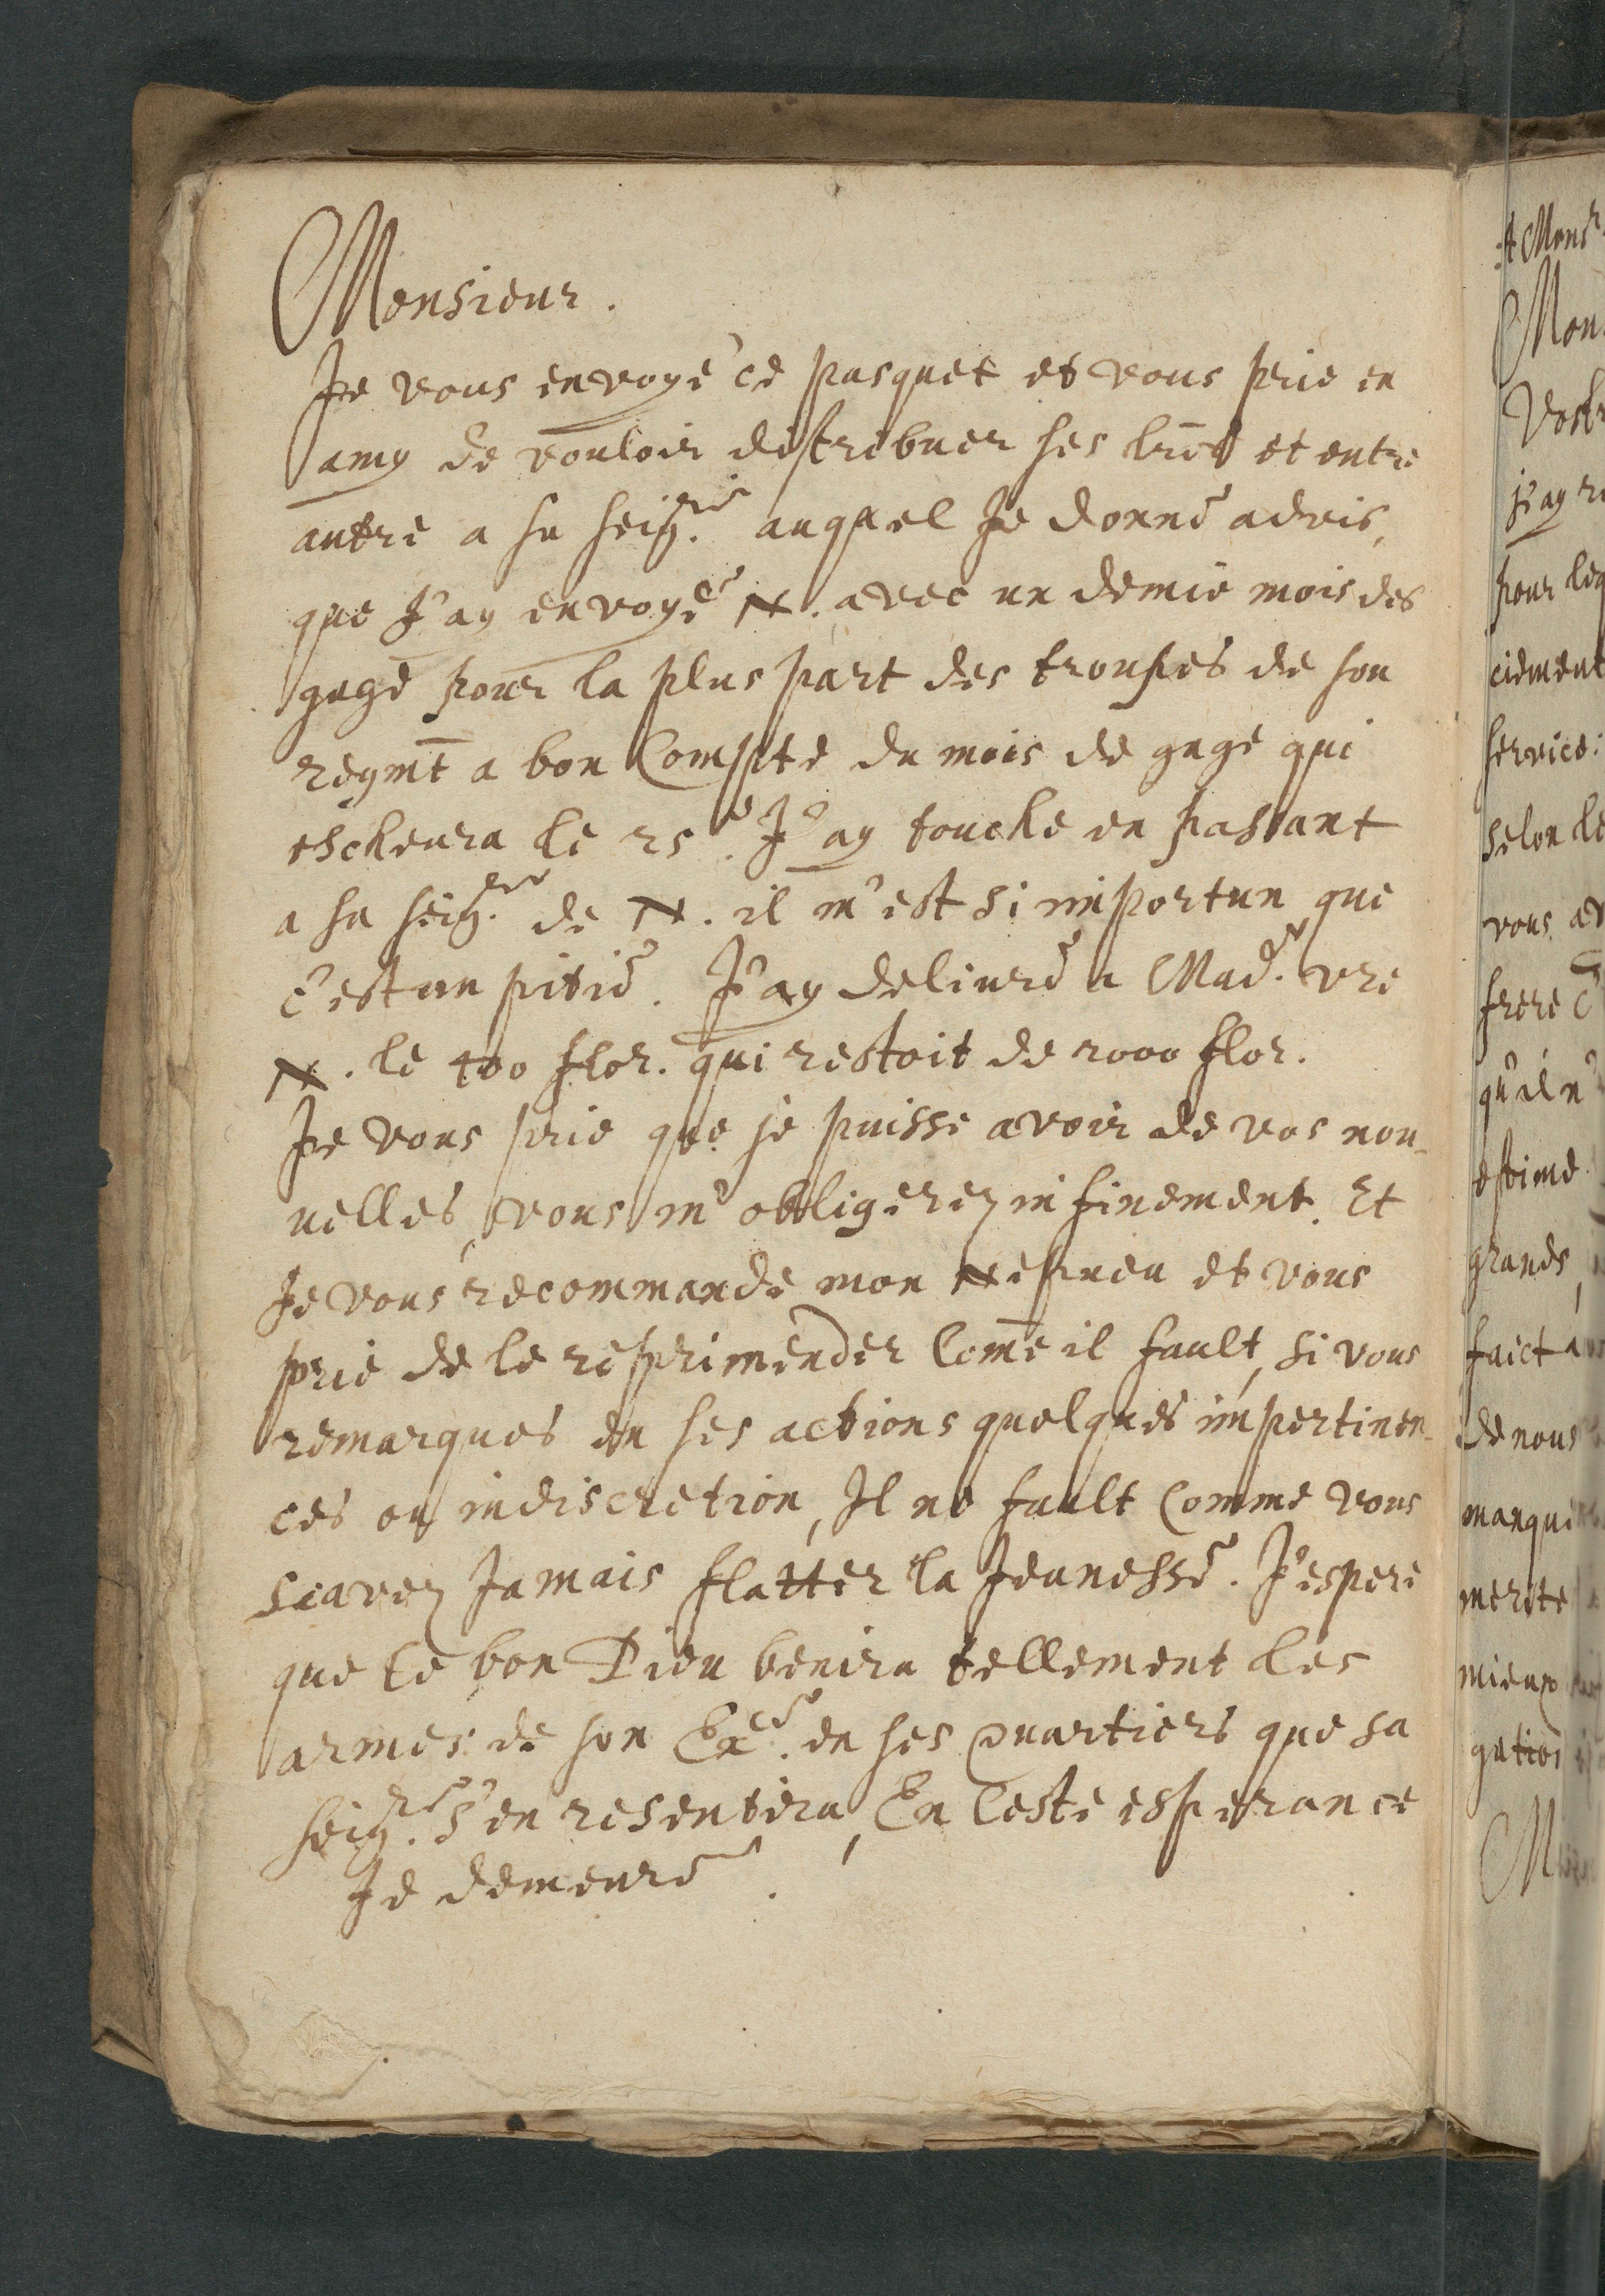 Monsieur.
Je vous envoye ce pasquet et vous prie en
amy de vouloir distribuer ses lres et entre
autre a sa seig.rie auquel Je donne advis,
que J'ay envoyé N. avec un demie mois des
gage pour la plus part des troupes de son
regmt a bon Compte du mois de gage qui
escheura le 25e. J'ay touche en passant
a sa seig.rie de N. il m'est si importun que
c'est un pitié. J'ay deliuré a Mad.e vre
N. le 400 flor. qui restoit de 2000 flor.
Je vous prie que je puisse avoir de vos nou-
uelles, vous m'obligerez infinement. Et
Je vous recommande mon Nepueu et vous
prie de le reprimender Come il fault, si vous
remarques en ses actions quelques impertinen-
ces ou indiscretion, Il ne fault Comme vous
scavez Jamais flatter la Jeunesse. J'espere
que le bon Dieu benira tellement les
armes de son Exce. en ses quartiers que sa
seig.rie s'en resentira, En Ceste esperance
Je demeure.
A Monsr
Mon
Vost
j'ay re
pour leq
ciement
service:
selon le
vous av
frere
qu'il n'
estime
grands,
faict a
de nous
manque
merite
mieux
gation
M